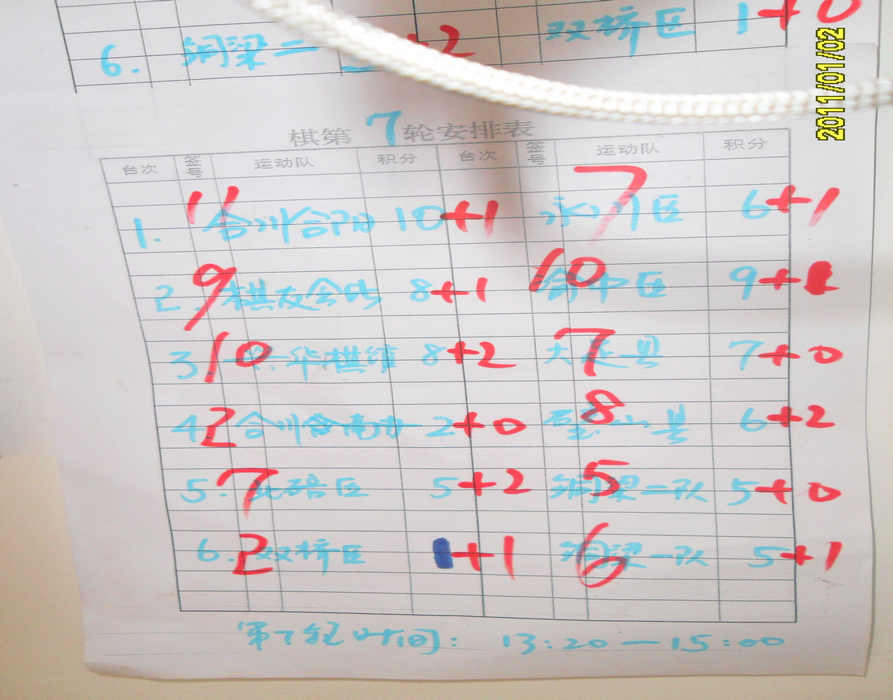 6. 铜梁二 +2 双桥区 1+0
2011/01/02
棋第7轮安排表
台次 签号 运动队 积分 台次 签号 运动队 积分
1. 11 合川合阳 10+1 7 永川区 6+1
2 9 棋友会所 8+1 10 渝中区 9+1
3 10 华棋缘 8+2 7 大足县 7+0
4 2 合川合南办 2+0 8 县 6+2
5. 7 北碚区 5+2 5 铜梁一队 5+0
6. 2 双桥区 +1 6 铜梁一队 5+1
第7轮时间: 13:20—15:00